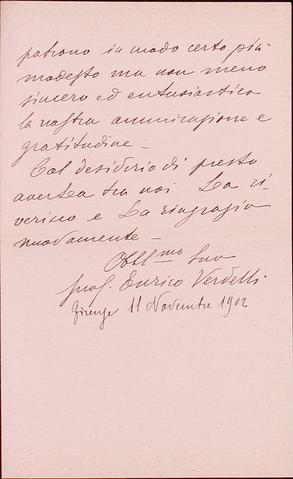 patrono in modo certo più
modesto ma non meno
sincero ed entusiastico
la nostra ammirazione e
gratitudine —
Col desiderio di presto
averLa tra noi La ri-
verisco e La ringrazio
nuovamente —
Obbl.mo Suo
prof. Enrico Verdelli
Firenze 11 Novembre 1902